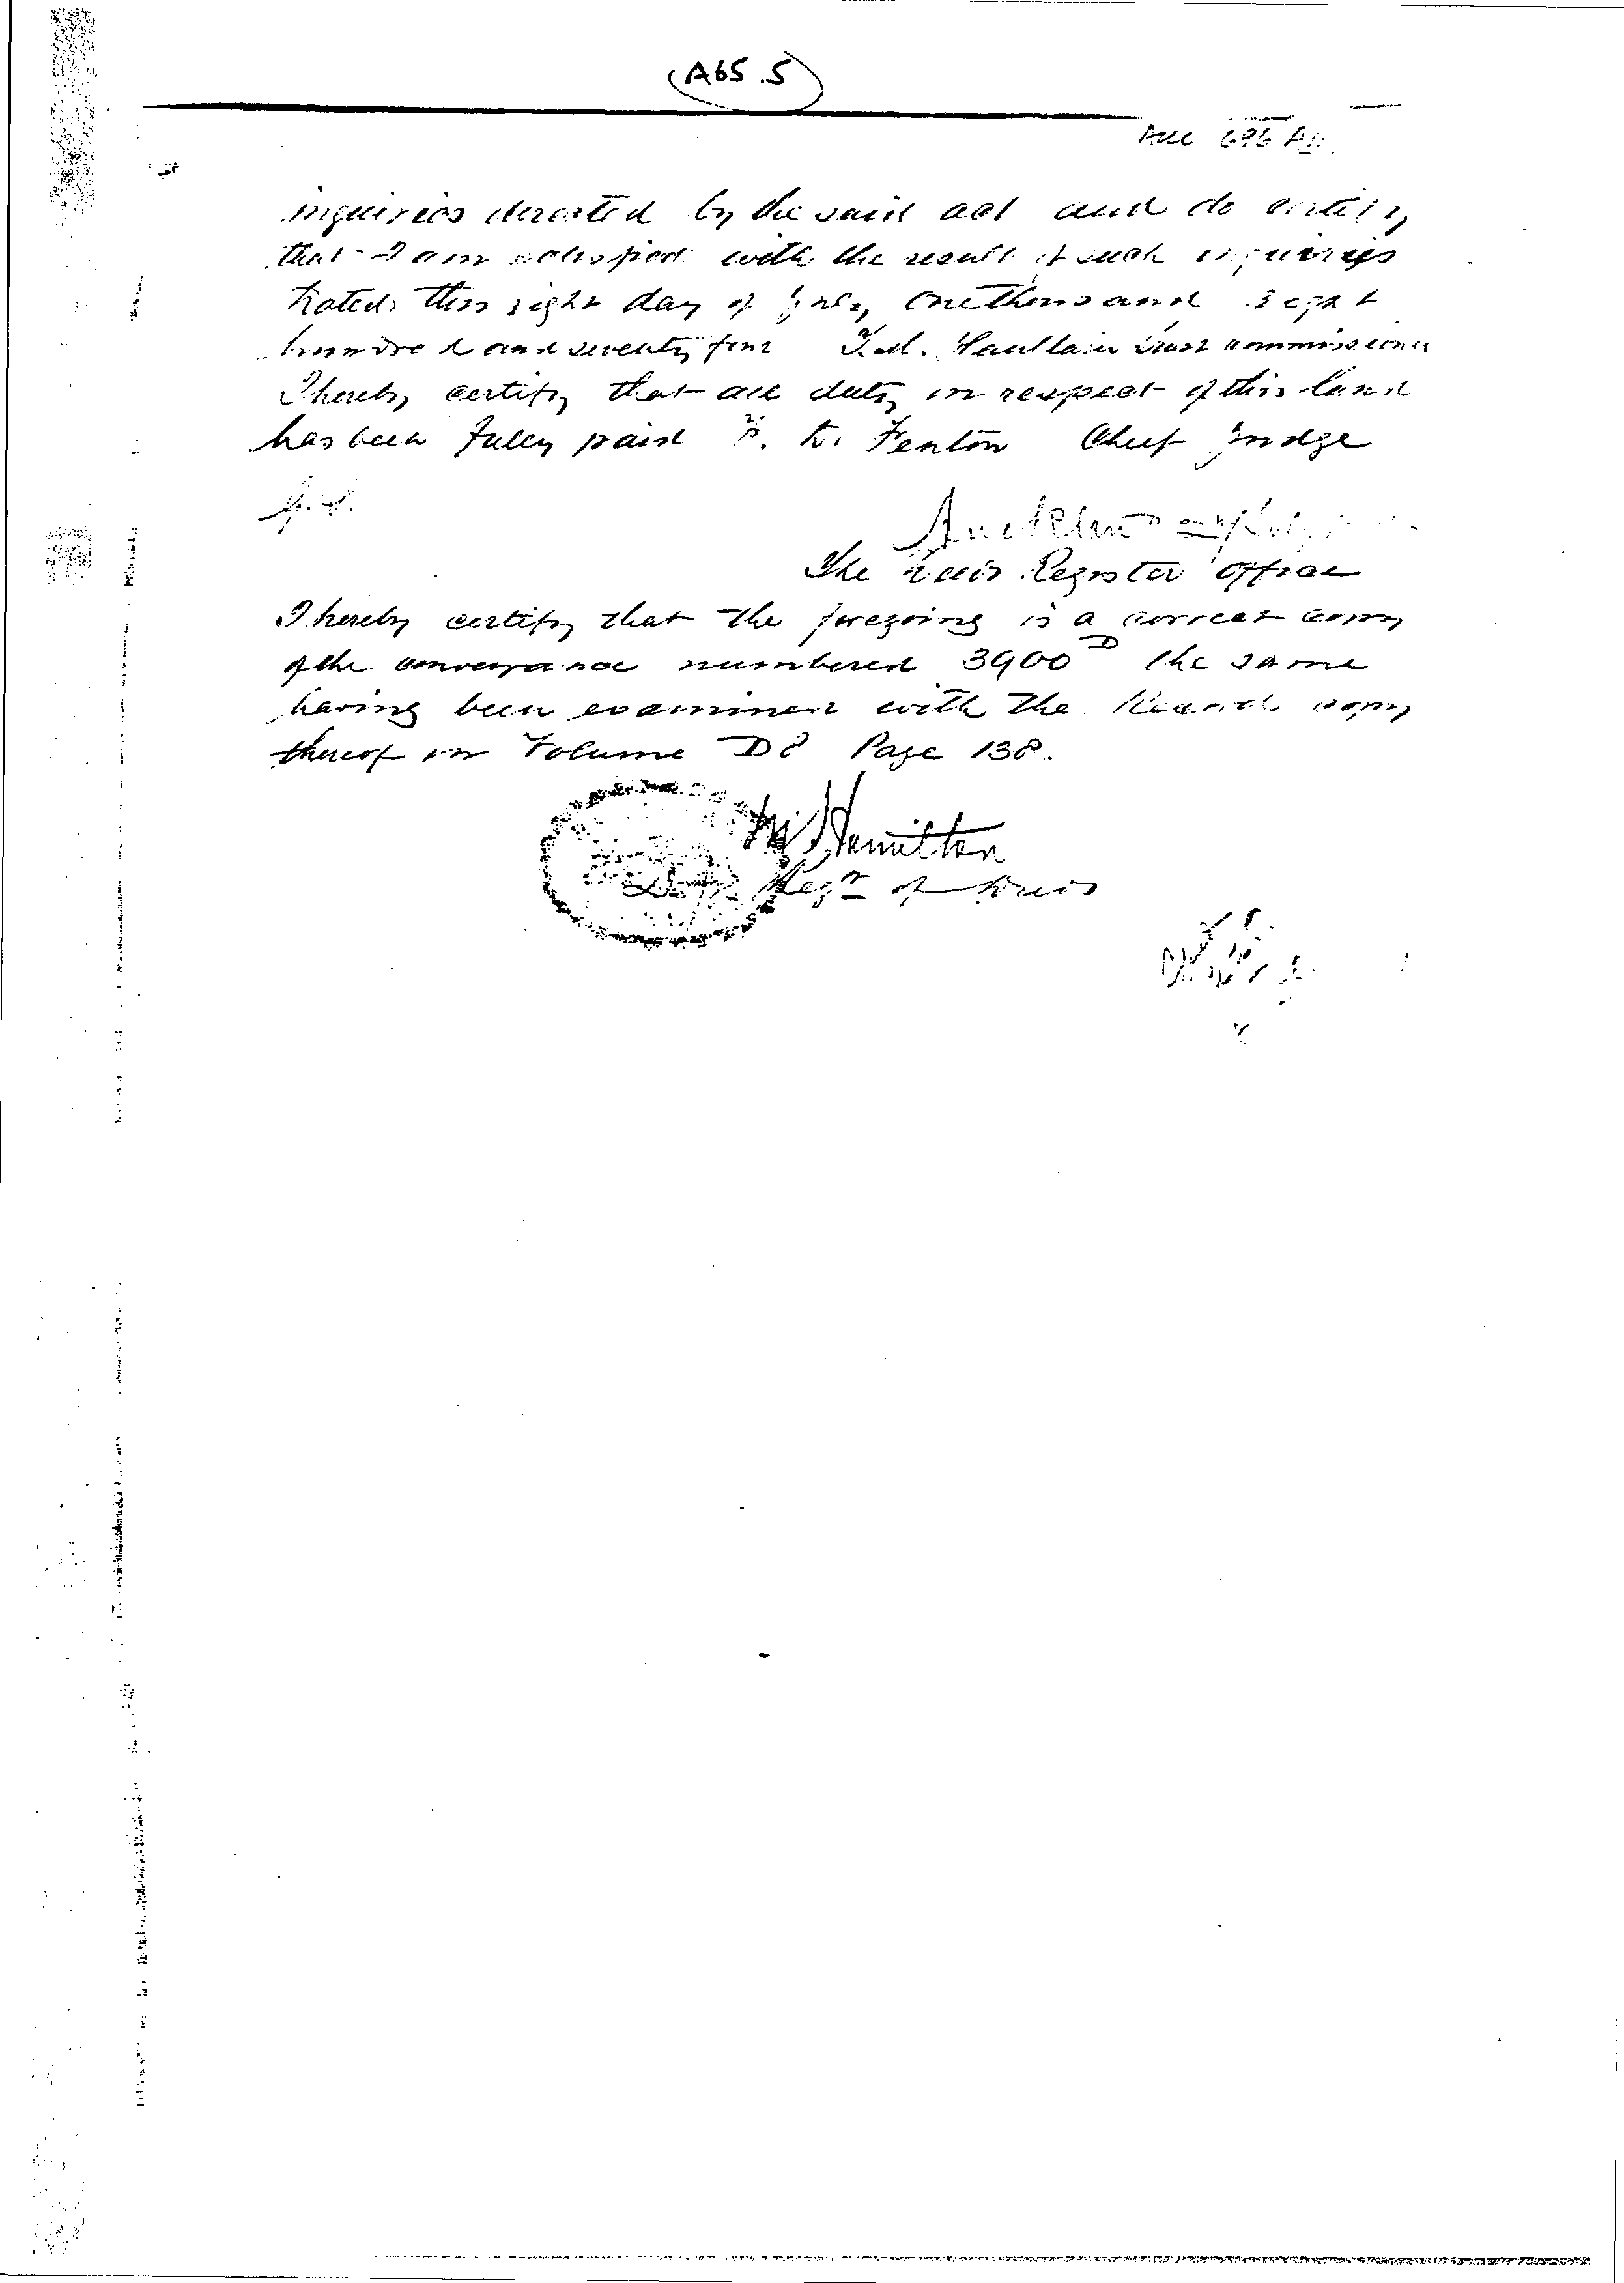 A65.5
Acc 696
inquiries directed by the said act and do certify
that I am satisfied with the result of such inquiries
Dated this eight day of July One thousand eight
hundred and seventy four T. M. Haultain Trust Commissioner
I hereby certify that all duty in respect of this land
has been fully paid F. D. Fenton Chief Judge
Auckland
The Deeds Register Office
I hereby certify that the foregoing is a correct copy
of the conveyance numbered 3900 D the same
having been examined with the Record copy
thereof in Volume D8 Page 138.
Hamilton
Regr of Deeds